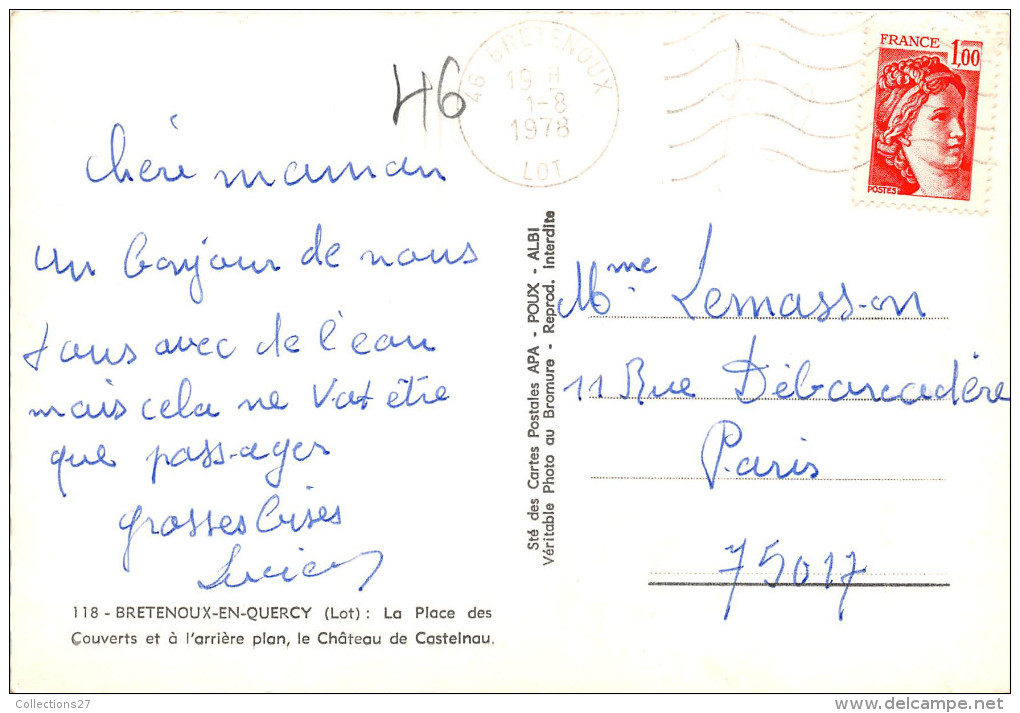 46
46 BRETENOUX
19 H
1-8
1978
LOT
FRANCE 1,00
POSTES
Chère maman
un bonjour de nous
tous avec de l'eau
mais cela ne Vat être
que passager
grosses bises
Lucien
118 - BRETENOUX-EN-QUERCY (Lot) : La Place des
Couverts et à l'arrière plan, le Château de Castelnau.
Sté des Cartes Postales APA - POUX - ALBI
Véritable Photo au Bromure - Reprod. interdite
Mme Lemasson
11 Rue Débarcadère
Paris
75017
Collections27
www.delcampe.net